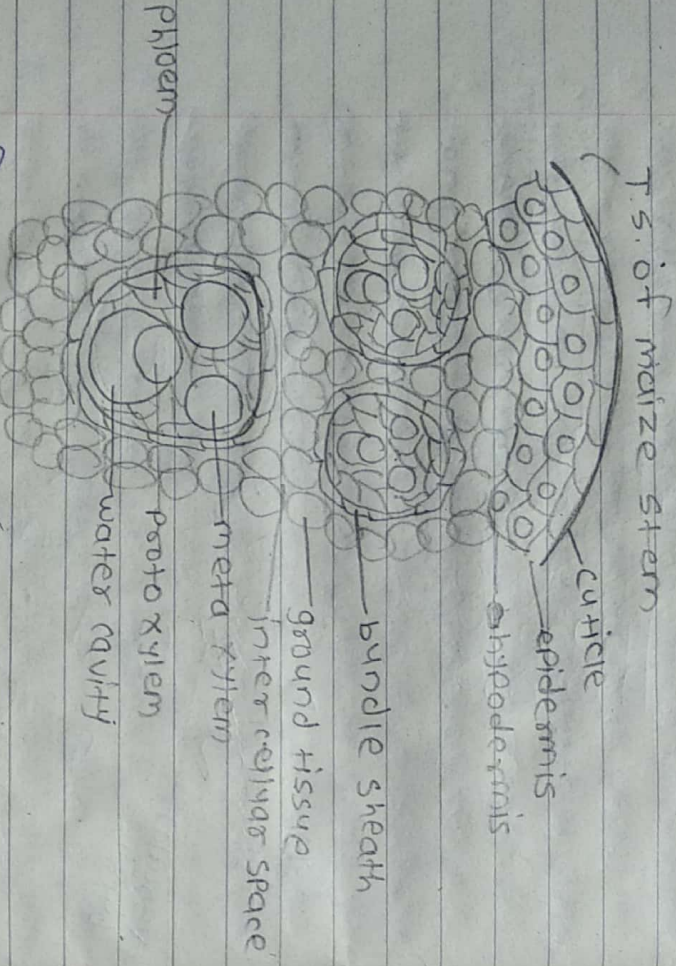 T.S. of maize stem
cuticle
epidermis
hypodermis
bundle sheath
ground tissue
inter cellyar space
meta xylem
proto xylem
water cavity
Phloem